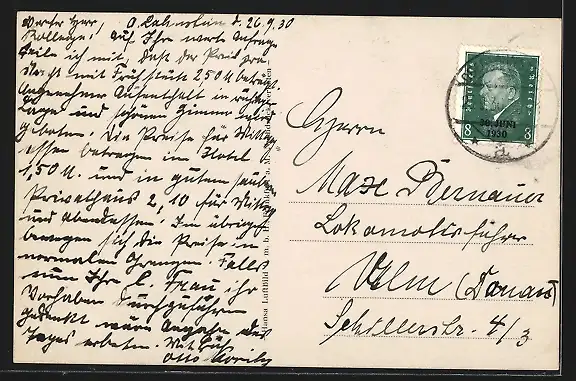 Werter Herr, O. Lahnstein d. 26.9.30
Kollege! Auf Ihre werte Anfrage
teile ich mit, daß der Preis pro
Nacht mit Frühstück 2,50 M beträgt.
Angenehmer Aufenthalt in ruhiger
Lage und schönen Zimmer wird
geboten. Die Preise für Mittag-
essen betragen im Hotel
1,50 M. und in gutem sauberen
Privathaus 2,10 für Mittag
und Abendessen. Im übrigen
bewegen sich die Preise in
normalen Grenzen. Falls
nun Ihre l. Frau ihr
Vorhaben durchzuführen
gedenkt wäre Angabe des
Tages erbeten. Mit
Otto
Hansa Luftbild G. m. b. H.
30. JUNI
1930
8 8
Herrn
Max Bernauer
Lokomotivführer
Ulm (Donau)
Schillerstr. 4/3